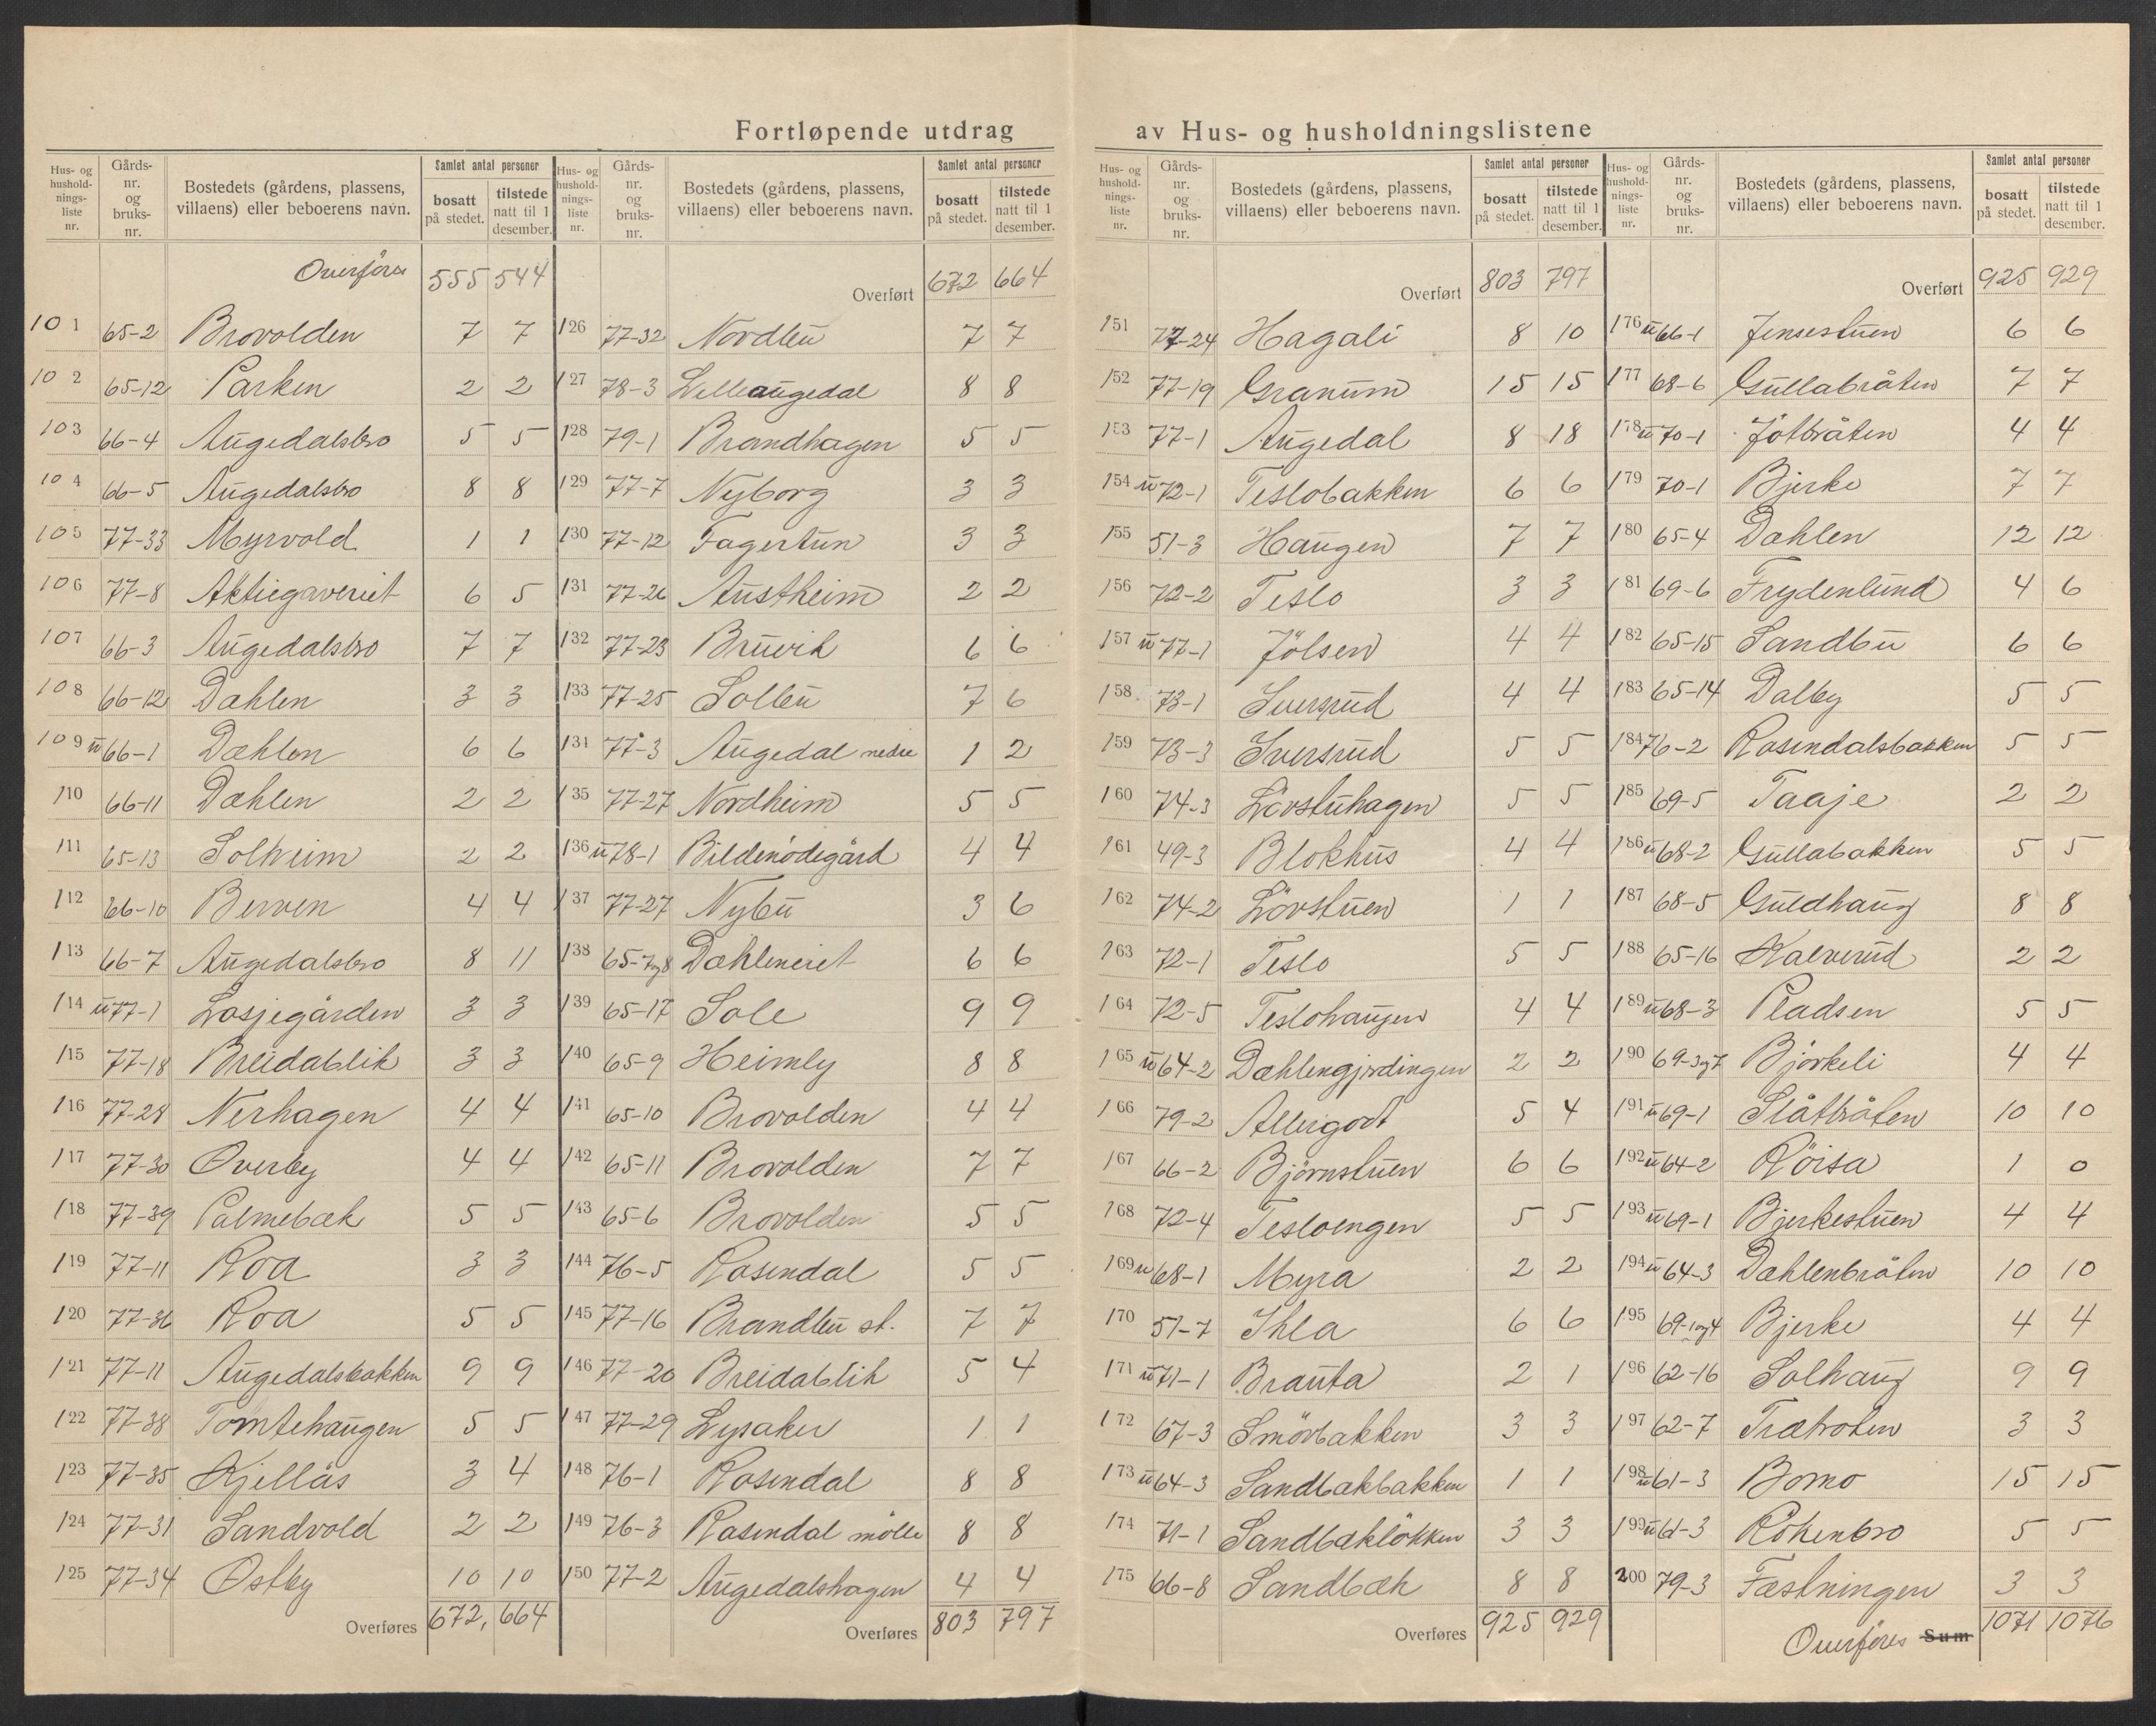 Fortløpende utdrag av Hus- og husholdningslistene
Hus- og hushold- nings- liste nr. | Gårds- nr. og bruks- nr. | Bostedets (gårdens, plassens, villaens) eller beboerens navn. | Samlet antal personer bosatt på stedet. | tilstede natt til 1 desember.
Overføres 555 544
101 65-2 Brovolden 7 7
102 65-12 Parken 2 2
103 66-4 Augedalsbro 5 5
104 66-5 Augedalsbro 8 8
105 77-33 Myrvold 1 1
106 77-8 Aktiegarveriet 6 5
107 66-3 Augedalsbro 7 7
108 66-12 Dæhlen 3 3
109 u 66-1 Dæhlen 6 6
110 66-11 Dæhlen 2 2
111 65-13 Solheim 2 2
112 66-10 Berven 4 4
113 66-7 Augedalsbro 8 11
114 u 77-1 Losjegården 3 3
115 77-18 Breidablik 3 3
116 77-28 Nerhagen 4 4
117 77-30 Overby 4 4
118 77-39 Palmebæk 5 5
119 77-11 Roa 3 3
120 77-36 Roa 5 5
121 77-11 Augedalsbakken 9 9
122 77-38 Tomtehaugen 5 5
123 77-35 Kjellås 3 4
124 77-31 Sandvold 2 2
125 77-34 Østby 10 10
Overføres 672, 664
Hus- og hushold- nings- liste nr. | Gårds- nr. og bruks- nr. | Bostedets (gårdens, plassens, villaens) eller beboerens navn. | Samlet antal personer bosatt på stedet. | tilstede natt til 1 desember.
Overført 672 664
126 77-32 Nordbu 7 7
127 78-3 Lilleaugedal 8 8
128 79-1 Brandhagen 5 5
129 77-7 Nyborg 3 3
130 77-12 Fagertun 3 3
131 77-26 Austheim 2 2
132 77-23 Bruvik 6 6
133 77-25 Solbu 7 6
134 77-3 Augedal nedre 1 2
135 77-27 Nordheim 5 5
136 u 78-1 Bildenödegård 4 4
137 77-27 Nybu 3 6
138 65-7og8 Dæhleneiet 6 6
139 65-17 Sole 9 9
140 65-9 Heimly 8 8
141 65-10 Brovolden 4 4
142 65-11 Brovolden 7 7
143 65-6 Brovolden 5 5
144 76-5 Rosendal 5 5
145 77-16 Brandbu st. 7 7
146 77-20 Breidablik 5 4
147 77-29 Lysaker 1 1
148 76-1 Rosendal 8 8
149 76-3 Rosendal mölle 8 8
150 77-2 Augedalshagen 4 4
Overføres 803 797
Hus- og hushold- nings- liste nr. | Gårds- nr. og bruks- nr. | Bostedets (gårdens, plassens, villaens) eller beboerens navn. | Samlet antal personer bosatt på stedet. | tilstede natt til 1 desember.
Overført 803 797
151 77-24 Hagali 8 10
152 77-19 Granum 15 15
153 77-1 Augedal 8 18
154 u 72-1 Teslobakken 6 6
155 51-3 Haugen 7 7
156 72-2 Teslo 3 3
157 u 77-1 Jölsen 4 4
158 73-1 Iversrud 4 4
159 73-3 Iversrud 5 5
160 74-3 Lövstuhagen 5 5
161 49-3 Blokhus 4 4
162 74-2 Lövstuen 1 1
163 72-1 Teslo 5 5
164 72-5 Teslohaugen 4 4
165 u 64-2 Dæhlengjerdingen 2 2
166 79-2 Allergodt 5 4
167 66-2 Björnstuen 6 6
168 72-4 Tesloengen 5 5
169 u 68-1 Myra 2 2
170 51-7 Ihla 6 6
171 u 71-1 Brauta 2 1
172 67-3 Smörbakken 3 3
173 u 64-3 Sandbækbakken 1 1
174 71-1 Sandbæklökken 3 3
175 66-8 Sandbæk 8 8
Overføres 925 929
Hus- og hushold- nings- liste nr. | Gårds- nr. og bruks- nr. | Bostedets (gårdens, plassens, villaens) eller beboerens navn. | Samlet antal personer bosatt på stedet. | tilstede natt til 1 desember.
Overført 925 929
176 u 66-1 Jensestuen 6 6
177 68-6 Gullabråten 7 7
178 u 70-1 4 4
179 70-1 Bjerke 7 7
180 65-4 Dæhlen 12 12
181 69-6 Frydenlund 4 6
182 65-15 Sandbu 6 6
183 65-14 Dalby 5 5
184 76-2 Rosendalsbakken 5 5
185 69-5 Taaje 2 2
186 u 68-2 Gullabakken 5 5
187 68-5 Guldhaug 8 8
188 65-16 Kalverud 2 2
189 u 68-3 Pladsen 5 5
190 69-3og7 Björkeli 4 4
191 u 69-1 Slåttbråten 10 10
192 u 64-2 Röisa 1 0
193 u 69-1 Bjerkestuen 4 4
194 u 64-3 Dæhlenbråten 10 10
195 69-1og4 Bjerke 4 4
196 62-16 Solhaug 9 9
197 62-7 Trætroten 3 3
198 u 61-3 Bomo 15 15
199 u 61-3 Rokenbro 5 5
200 79-3 Fæstningen 3 3
Overføres Sum 1071 1076